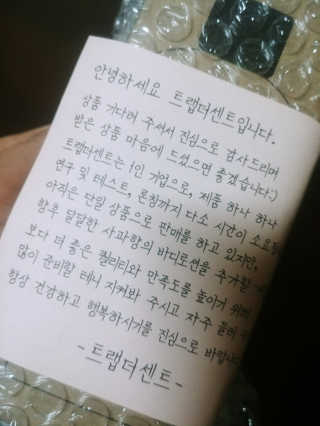 안녕하세요 트랩더센트입니다.
상품 기다려 주셔서 진심으로 감사드리며
받은 상품 마음에 드셨으면 좋겠습니다:)
트랩더센트는 1인 기업으로, 제품 하나 하나
연구 및 테스트, 론칭까지 다소 시간이 소요됩
아직은 단일 상품으로 판매를 하고 있지만,
향후 달달한 사과향의 바디로션을 추가할
보다 더 좋은 퀄리티와 만족도를 높이기 위해
많이 준비할 테니 지켜봐 주시고 자주 들러
항상 건강하고 행복하시기를 진심으로 바랍니다
- 트랩더센트 -